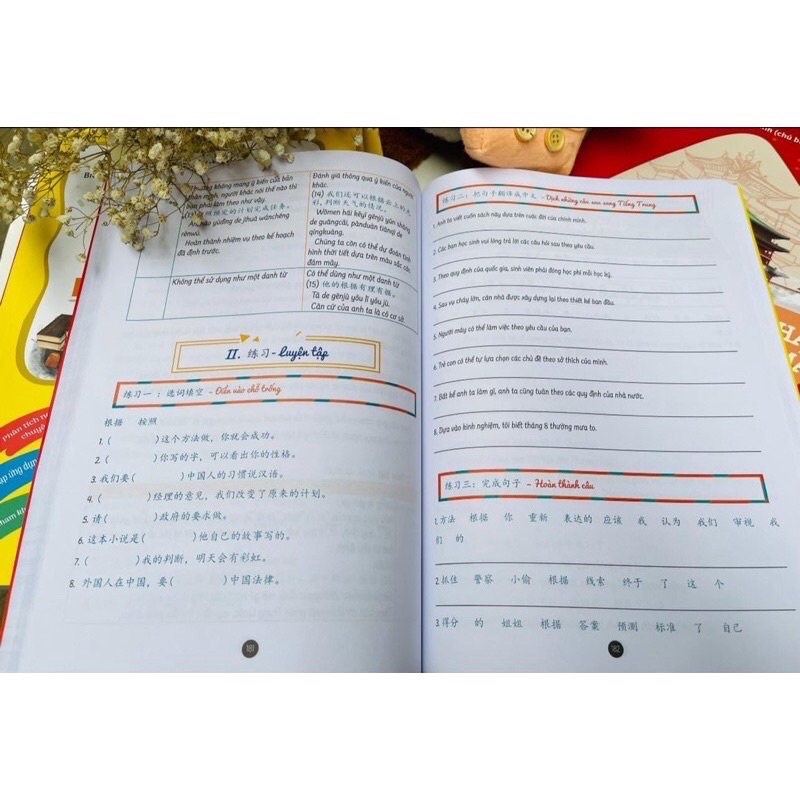 Thường không mang ý kiến của bản
thân mình, người khác nói thế nào thì
bản thân làm theo như vậy.
按照预定的计划完成任务。
yùdìng de jìhuà wánchéng
rènwu.
Hoàn thành nhiệm vụ theo kế hoạch
đã định trước.
Đánh giá thông qua ý kiến của người
khác.
(14) 我们还可以根据云上的光
彩,判断天气的情况。
Wǒmen hái kěyǐ gēnjù yún shàng
de guāngcǎi, pànduàn tiānqì de
qíngkuàng.
Chúng ta còn có thể dự đoán tình
hình thời tiết dựa trên màu sắc các
đám mây.
Không thể sử dụng như một danh từ
Có thể dùng như một danh từ
(15) 他的根据有理有据。
Tā de gēnjù yǒu lǐ yǒu jù.
Căn cứ của anh ta là có cơ sở.
II. 练习 - Luyện tập
练习一：选词填空 - Điền vào chỗ trống
根据 按照
1. ( )这个方法做，你就会成功。
2. ( )你写的字，可以看出你的性格。
3. 我们要( )中国人的习惯说汉语。
4. ( )经理的意见，我们改变了原来的计划。
5. 请( )政府的要求做。
6. 这本小说是( )他自己的故事写的。
7. ( )我的判断，明天会有彩虹。
8. 外国人在中国，要( )中国法律。
181
练习二：把句子翻译成中文 - Dịch những câu sau sang Tiếng Trung
1. Anh ta viết cuốn sách này dựa trên cuộc đời của chính mình.
2. Các bạn học sinh vui lòng trả lời các câu hỏi sau theo yêu cầu.
3. Theo quy định của quốc gia, sinh viên phải đóng học phí mỗi học kỳ.
4. Sau vụ cháy lớn, căn nhà được xây dựng lại theo thiết kế ban đầu.
5. Người máy có thể làm việc theo yêu cầu của bạn.
6. Trẻ con có thể tự lựa chọn các chủ đề theo sở thích của mình.
7. Bất kể anh ta làm gì, anh ta cũng tuân theo các quy định của nhà nước.
8. Dựa vào kinh nghiệm, tôi biết tháng 8 thường mưa to.
练习三：完成句子 - Hoàn thành câu
1. 方法 根据 你 重新 表达的 应该 我 认为 我们 审视 我
们 的
2. 抓住 警察 小偷 根据 线索 终于 了 这 个
3. 得分 的 姐姐 根据 答案 预测 标准 了 自己
182